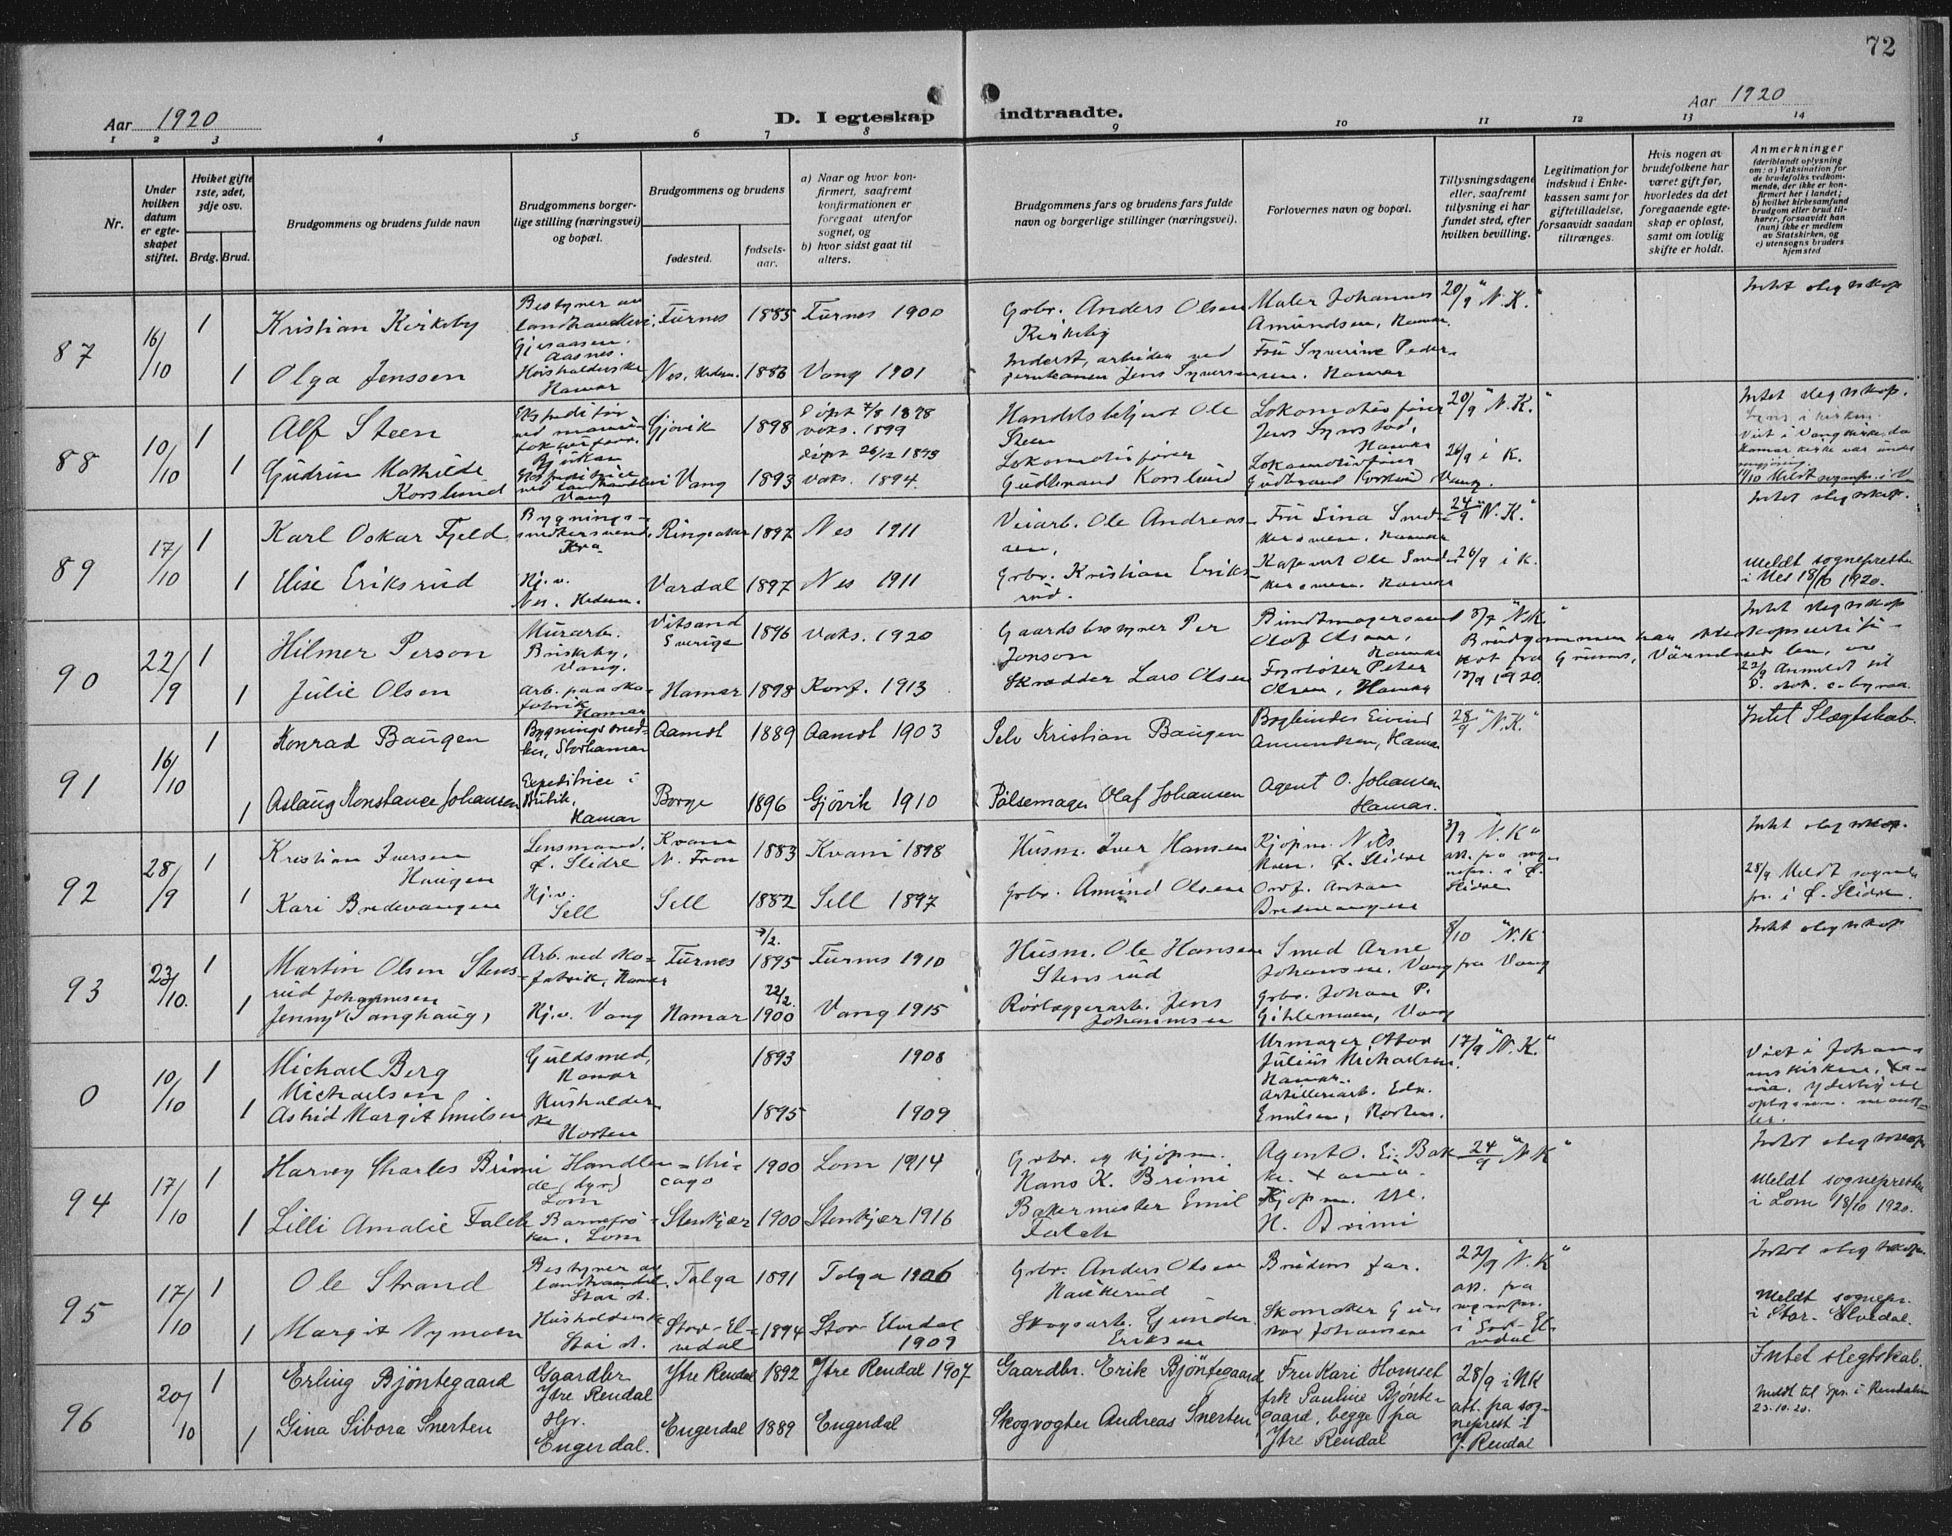 72
Aar 1920
D. I egteskap indtraadte.
Aar 1920
1 2 3 4 5 6 7 8 9 10 11 12 13 14
Nr.
Under hvilken datum er egteskapet stiftet.
Hvilket gifte 1ste, 2det, 3dje osv.
Brdg. Brud.
Brudgommens og brudens fulde navn
Brudgommens borgerlige stilling (næringsvei) og bopæl.
Brudgommens og brudens
fødested.
fødselsaar.
a) Naar og hvor konfirmert, saafremt konfirmationen er foregaat utenfor sognet, og
b) hvor sidst gaat til alters.
Brudgommens fars og brudens fars fulde navn og borgerlige stillinger (næringsvei).
Forlovernes navn og bopæl.
Tillysningsdagene eller, saafremt tillysning ei har fundet sted, efter hvilken bevilling.
Legitimation for indskud i Enkekassen samt for giftetilladelse, forsaavidt saadan tiltrænges.
Hvis nogen av brudefolkene har været gift før, hvorledes da det foregaaende egteskap er opløst, samt om lovlig skifte er holdt.
Anmerkninger
(deriblandt oplysning om: a) Vaksination for de brudefolks vedkommende, der ikke er konfirmert her i landet; b) hvilket kirkesamfund brudgom eller brud tilhører, forsaavidt han (hun) ikke er medlem av Statskirken, og c) utensogns bruders hjemsted
87 16/10 1 Kristian Kirkeby Bestyrer av landhandleri, Gjesaasen. Aasnes. Furnes 1885 Furnes 1900 Gbr. Anders Olsen Kirkeby Maler Johannes Amundsen, Hamar. 20/9 "N.K." Intet slegtskap
1 Olga Jenssen Husholderske Hamar Nes, Hedem. 1886 Vang 1901 Inderst, arbeider ved jernbanen Jens Syversen Fru Syverine Pedersen. Hamar
88 10/10 1 Alf Steen Gjøvik 1898 Døpt 7/8 1898 vaks. 1899 Handelsbetjent Ole Steen Lokomotivfører Jens Synstad, Hamar 20/9 "N.K." Intet slegtskap.
1 Gudrun Mathilde Korslund Ekspeditrice ved landhandleri Vang Vang 1893 døpt 26/12 1893 vaks. 1894. Lokomotivfører Gudbrand Korslund Lokomotivfører Gudbrand Korslund Vang. 26/9 i K. Viet i Vang kirke, da Hamar kirke var under
89 17/10 1 Karl Oskar Fjeld Bygningssnekkersvend, Kra Ringsaker 1897 Nes 1911 Veiarb. Ole Andreassen, Fru Lina Hamar 24/9 "N.K." Intet slegtskap.
1 Elise Eriksrud Hj. v. Nes, Hedem. Vardal 1897 Nes 1911 Gbr. Kristian Eriksrud. Ole Hamar 26/9 i K. Meldt sognepresten i Nes 18/10 1920.
90 22/9 1 Hilmer Person Murarb. Briskeby, Vang. Vitsand Sverige 1896 Vaks. 1920 Gaardsbestyrer Per Jonson Bundtmagersvend Olaf Olsen, Hamar "N.K." Intet slegtskap
Brudgommen har 22/9 Anmeldt til
1 Julie Olsen Arb. paa skofabrik Hamar Hamar 1898 Konf. 1913 Skrædder Lars Olsen Fyrbøter Peter Olsen, Hamar
91 16/10 1 Konrad Baugen Bygningssnedker, Storhamar Aamot 1889 Aamot 1903 Selv Kristian Baugen Bogbinder Eivind Amundsen, Hamar 28/9 "N.K." Intet Slægtskab.
1 Aslaug Konstance Johansen Expeditrice i Butik, Hamar Borge 1896 Gjøvik 1910 Pølsemager Olaf Johansen Agent O. Johansen Hamar.
92 28/9 1 Kristian Iversen Haugen Lensmand, Ø. Slidre Kvam N. Fron 1883 Kvam 1898 Husm. Iver Hansen Kjøpm. Nils Moen. Ø. Slidre 3/9 "N.K" att. fra sognepr. i Ø. Slidre Intet slegtskap.
1 Kari Bredevangen Hj. v. Sell Sell 1882 Sell 1897 Gbr. Amund Olsen Bredevangen 28/9 Meldt sognepr. i Ø. Slidre.
93 23/10. 1 Martin Olsen Stensrud Arb. ved skofabrik, Hamar Furnes 7/2. 1895 Furnes 1910 Husm. Ole Hansen Stensrud Smed Arne Johansen. Vang 8/10 "N.K" fra Vang Intet slegtskap
1 Jenny Johannesen Vanghaug, Hj. v. Vang Hamar 22/2. 1900 Vang 1915 Rørlæggerarb. Jens Johannesen Gbr. Johan P. Gihlemoen, Vang
0 10/10 1 Michael Berg Michaelsen Guldsmed, Hamar 1893 1908 Urmager Julius Michaelsen. Hamar. 17/9 "N.K." Viet i Johanneskirken, Xania.
1 Astrid Margit Emilsen Husholderske Horten 1895 1909 Artilleriarb. Edv. Emilsen, Horten.
94 17/10 1 Harvey Charles Brimi Handlende (dyr) Lom Chicago 1900 Lom 1914 Gbr. og kjøpm. Hans K. Brimi Agent O. Ei. Bakke. Xania. 24/9 "N.K" Intet slegtskap
1 Lilli Amalie Falch Barnefrøken, Lom Stenkjær 1900 Stenkjær 1916 Bakermester Emil Falch Kjøpm. H. Brimi Meldt sognepresten i Lom 18/10 1920.
95 17/10 1 Ole Strand Bestyrer av landhandel Stai st. Tolga 1891 Tolga 1906 Gbr. Anders Olsen Haukerud Brudens far. 22/9 "N.K" att. fra sognepr. i Stor-Elvedal Intet slegtskap.
1 Margit Nymoen Husholderske Stai st. Stor-Elvedal 1894 Stor-Elvedal 1909 Skogsarb. Gunder Eriksen Skomaker Gunnar Johansen Meldt sognepr. i Stor-Elvedal.
96 20/10 1 Erling Bjöntegaard Gaardbr Ytre Rendal Ytre Rendal 1892 Ytre Rendal 1907 Gaardbr. Erik Bjöntegaard Fru Kari Homset 28/9 i NK att. fra sogneprest i Y. Rendal Intet slegtskab.
1 Gina Sibora Snerten Hjv. Engerdal. Engerdal 1889 Engerdal Skogvogter Andreas Snerten frk Pauline Bjöntegaard, begge fra Ytre Rendal Meldt til Spr. i Rendalen 23.10.20.